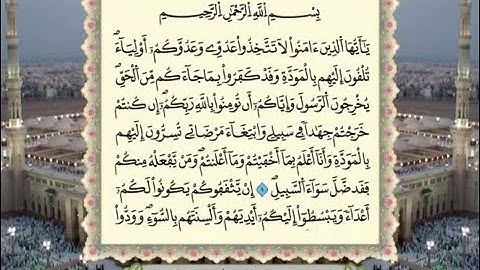 بِسْمِ اللَّهِ الرَّحْمَٰنِ الرَّحِيمِ
يَٰٓأَيُّهَا ٱلَّذِينَ ءَامَنُوا۟ لَا تَتَّخِذُوا۟ عَدُوِّى وَعَدُوَّكُمُۥٓ أَوْلِيَآءَ
تُلْقُونَ إِلَيْهِم بِٱلْمَوَدَّةِ وَقَدْ كَفَرُوا۟ بِمَا جَآءَكُم مِّنَ ٱلْحَقِّ
يُخْرِجُونَ ٱلرَّسُولَ وَإِيَّاكُمُۥٓ أَن تُومِنُوا۟ بِٱللَّهِ رَبِّكُمُۥٓ إِن كُنتُمْ
خَرَجْتُمْ جِهَٰدًا فِى سَبِيلِى وَٱبْتِغَآءَ مَرْضَاتِى تُسِرُّونَ إِلَيْهِم
بِٱلْمَوَدَّةِ وَأَنَآ أَعْلَمُ بِمَآ أَخْفَيْتُمْ وَمَآ أَعْلَنتُمْ وَمَن يَفْعَلْهُ مِنكُمْ
فَقَد ضَّلَّ سَوَآءَ ٱلسَّبِيلِ ١ إِن يَثْقَفُوكُمْ يَكُونُوا۟ لَكُمُۥٓ
أَعْدَآءً وَيَبْسُطُوٓا۟ إِلَيْكُمُۥٓ أَيْدِيَهُمْ وَأَلْسِنَتَهُم بِٱلسُّوٓءِ وَوَدُّوا۟